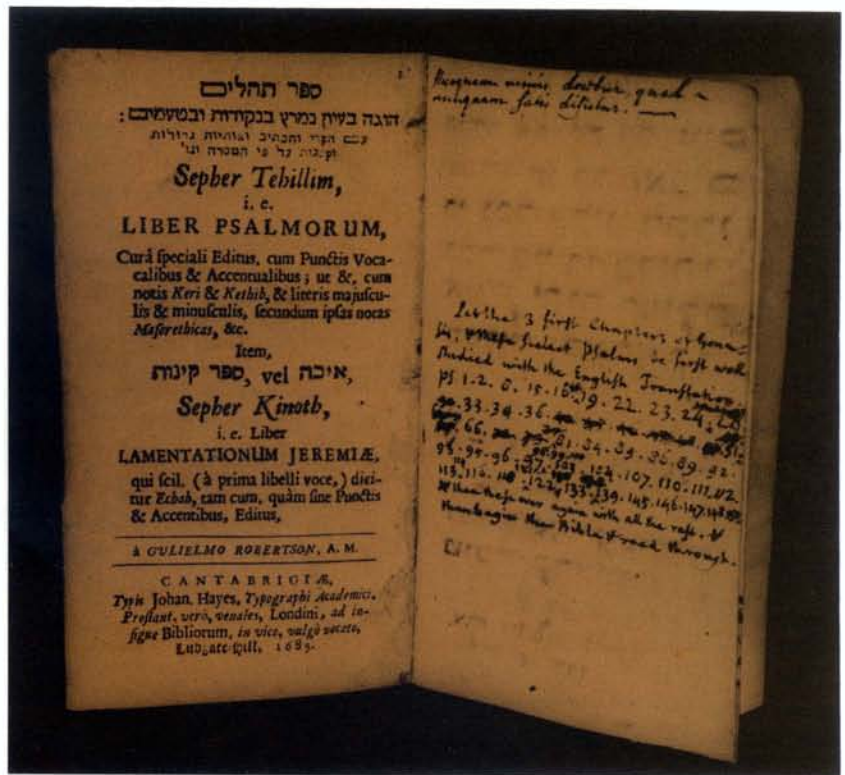 ספר תהלים
הוגה בעיון נמרץ בנקודות ובטעמים :
עם הקרי והכתיב ואותיות גדולות
וקטנות על פי המסרה וגו'
Sepher Tehillim,
i. e.
LIBER PSALMORUM,
Curâ ſpeciali Editus, cum Punctis Voca-
calibus & Accentualibus ; ut &, cum
notis Keri & Kethib, & literis majuſcu-
lis & minuſculis, ſecundum ipſas notas
Maſorethicas, &c.
Item,
ספר קינות, vel איכה,
Sepher Kinoth,
i. e. Liber
LAMENTATIONUM JEREMIÆ,
qui ſcil. (à prima libelli voce,) dici-
tur Echah, tam cum, quàm ſine Punctis
& Accentibus, Editus,
à GULIELMO ROBERTSON, A. M.
CANTABRIGIÆ,
Typis Johan. Hayes, Typographi Academici.
Proſtant, verò, venales, Londini, ad in-
ſigne Bibliorum, in vico, vulgò vocato,
Ludgate-hill, 1685.
Nunquam nimis docetur quod
nunquam ſatis diſcitur.
Let the 3 first Chapters of Gene-
sis, & these Select Psalms be first well
studied with the English Translation.
ps 1. 2. 8. 15. 16. 19. 22. 23. 24.
33. 34. 36. 51.
66. 81. 84. 85. 86. 89. 92.
95. 96. 103. 104. 107. 110. 111. 112.
113. 116. 122. 133. 139. 145. 146. 147. 148
then these over again with all the rest. &
then begin the Bible & read through.